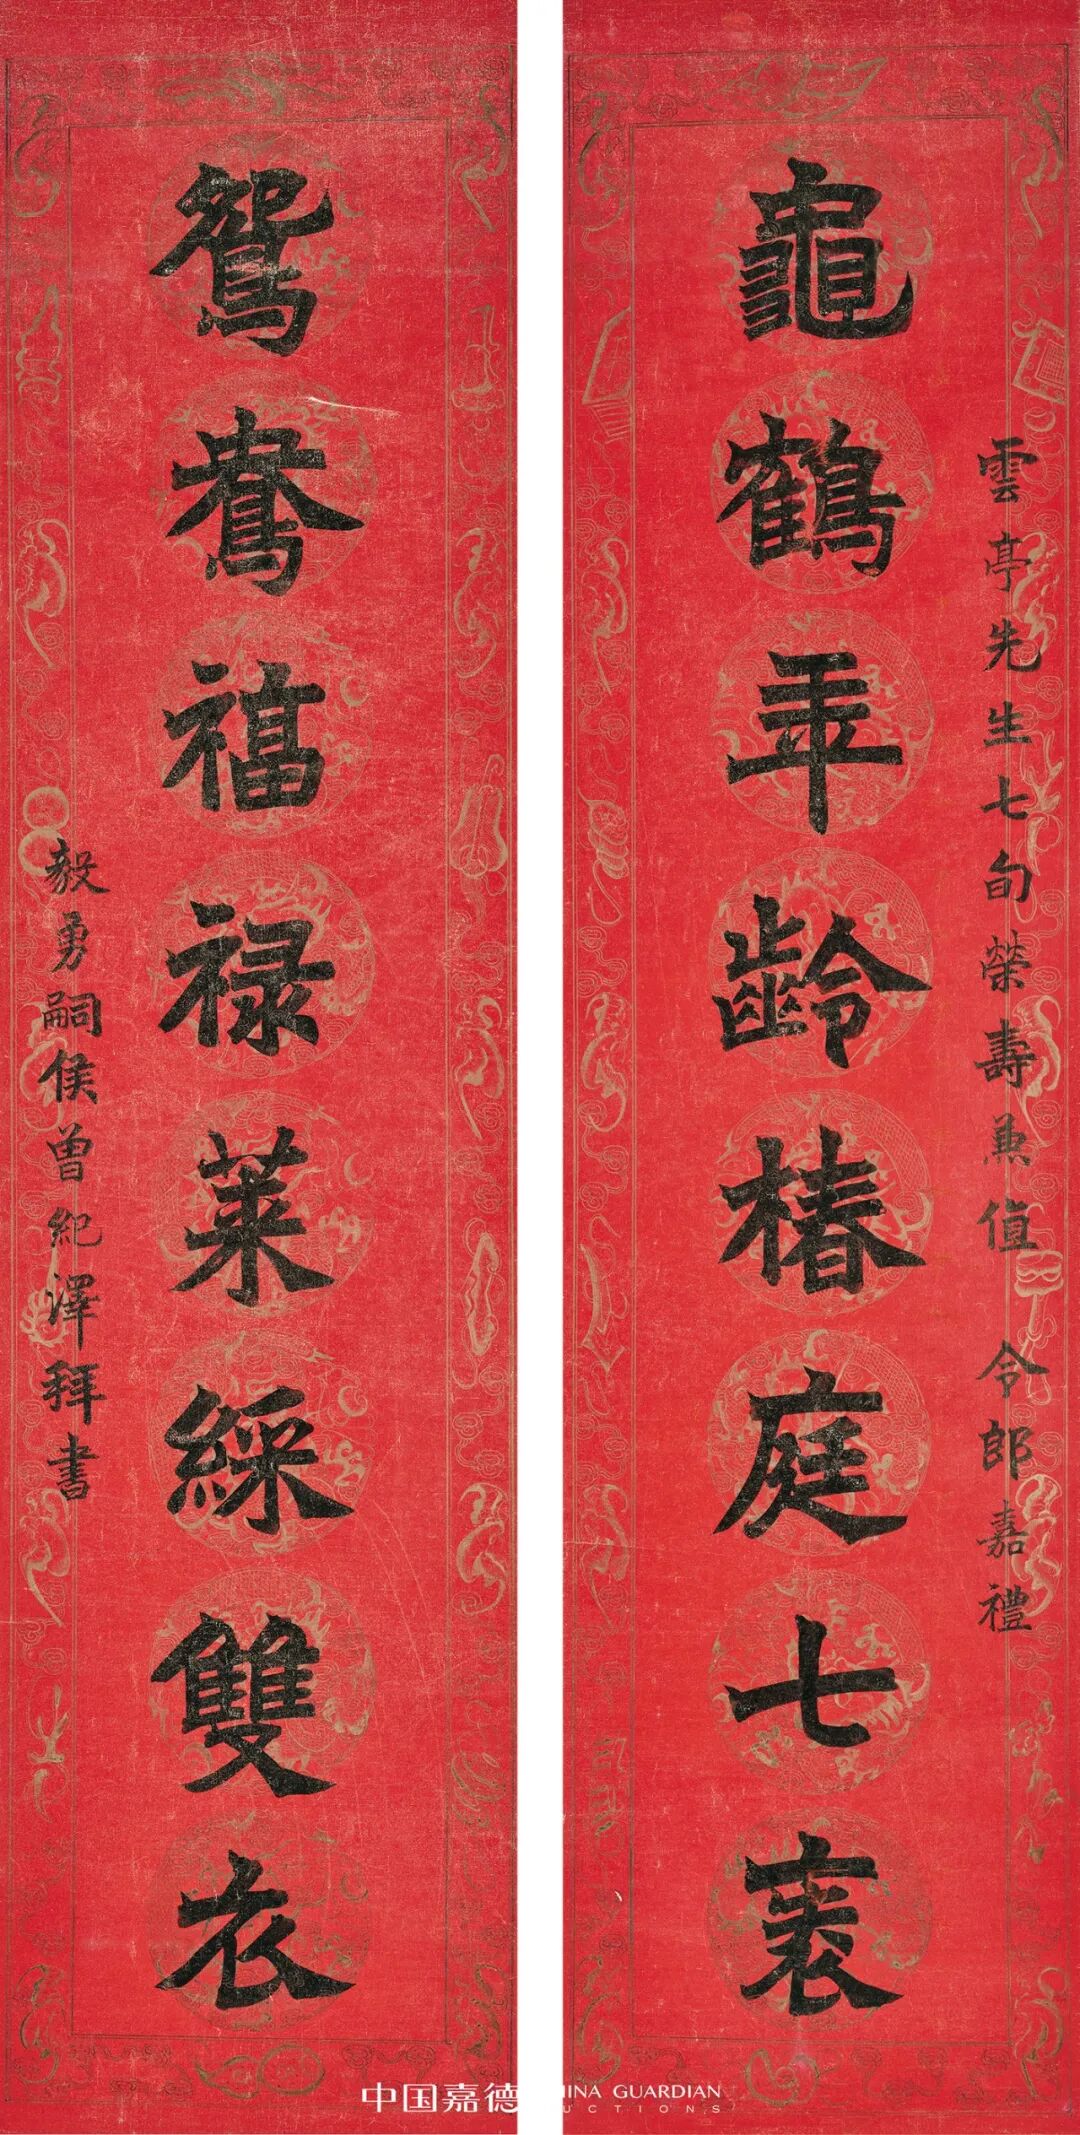 雲亭先生七旬榮壽兼值 令郎嘉禮
龜鶴年齡椿庭七袠
鴛鴦福祿萊綵雙衣
毅勇嗣侯曾紀澤拜書
中国嘉德 GUARDIAN